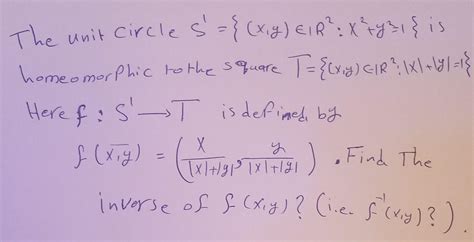 The unit circle S¹ = { (x,y) ∈ ℝ² : x²+y²=1 } is
homeomorphic to the square T={(x,y) ∈ ℝ² : |x|+|y|=1}
Here f : S¹ → T is defined by
f(x,y) = ( x/(|x|+|y|), y/(|x|+|y|) ) . Find The
inverse of f(x,y)? (i.e. f⁻¹(x,y)?).